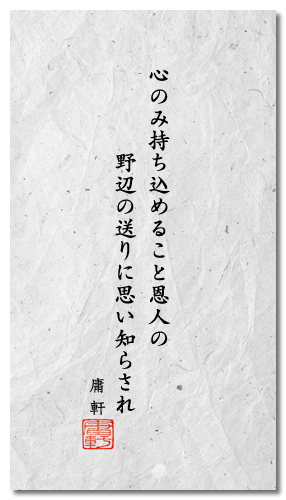 心のみ持ち込めること恩人の
野辺の送りに思い知らされ
庸軒